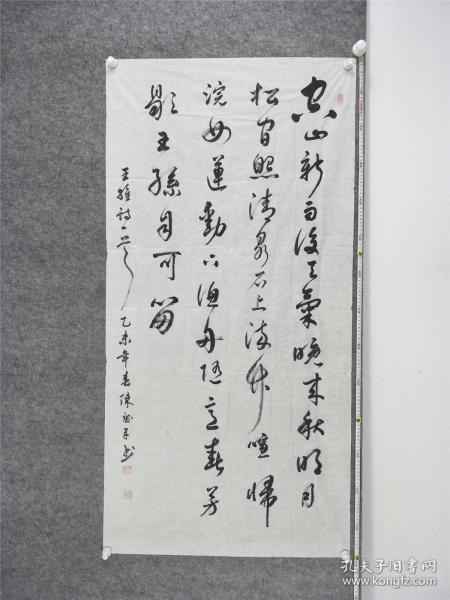 空山新雨後天氣晚来秋明月
松间照清泉石上流竹喧歸
浣女蓮動下渔舟随意春芳
歇王孫自可留
王維詩一首 乙未年春陳
孔夫子旧书网
www.kongfz.com